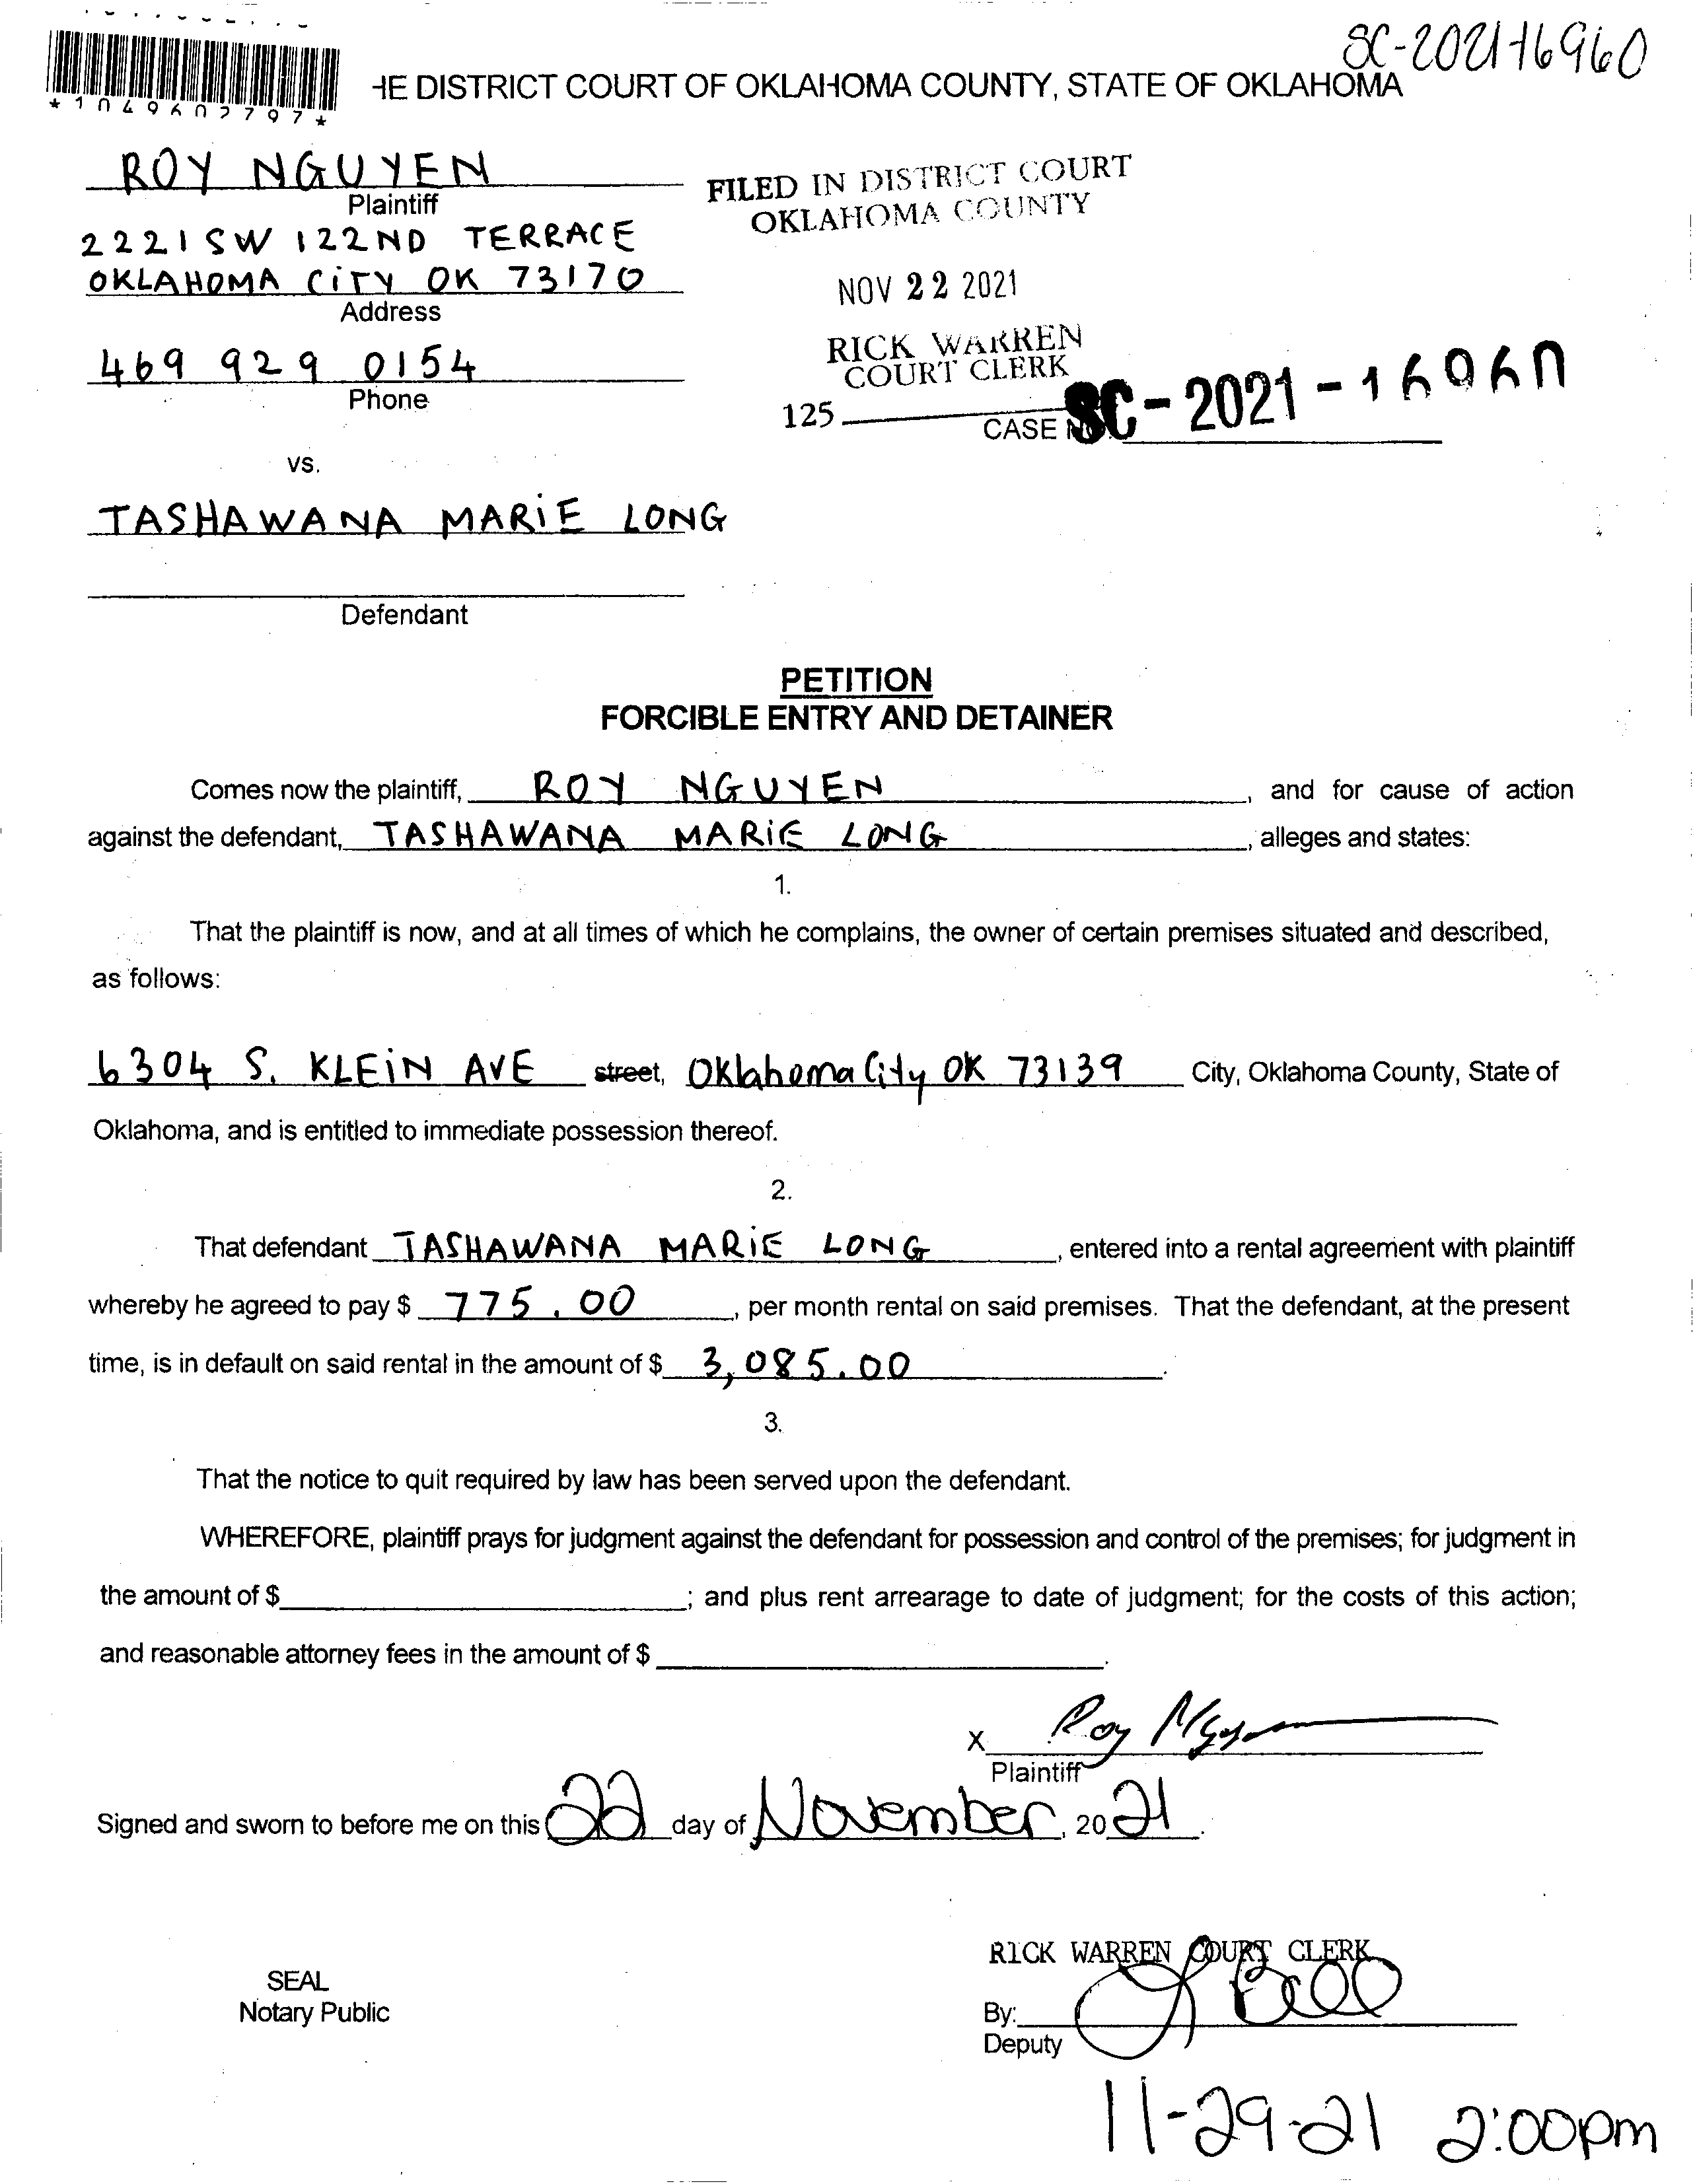 SC-2021-16960
HE DISTRICT COURT OF OKLAHOMA COUNTY, STATE OF OKLAHOMA
*1049602797*
ROY NGUYEN
Plaintiff
2221 SW 122ND TERRACE
OKLAHOMA CITY OK 73170
Address
469 929 0154
Phone
FILED IN DISTRICT COURT
OKLAHOMA COUNTY
NOV 22 2021
RICK WARREN
COURT CLERK
125
CASE SC-2021-16960
vs.
TASHAWANA MARIE LONG
Defendant
PETITION
FORCIBLE ENTRY AND DETAINER
Comes now the plaintiff, ROY NGUYEN, and for cause of action
against the defendant, TASHAWANA MARIE LONG, alleges and states:
1.
That the plaintiff is now, and at all times of which he complains, the owner of certain premises situated and described,
as follows:
6304 S. KLEIN AVE street, Oklahoma City OK 73139 City, Oklahoma County, State of
Oklahoma, and is entitled to immediate possession thereof.
2.
That defendant TASHAWANA MARIE LONG, entered into a rental agreement with plaintiff
whereby he agreed to pay $ 775.00, per month rental on said premises. That the defendant, at the present
time, is in default on said rental in the amount of $ 3,085.00.
3.
That the notice to quit required by law has been served upon the defendant.
WHEREFORE, plaintiff prays for judgment against the defendant for possession and control of the premises; for judgment in
the amount of $ ; and plus rent arrearage to date of judgment; for the costs of this action;
and reasonable attorney fees in the amount of $ .
X Roy Nguyen
Plaintiff
Signed and sworn to before me on this 22 day of November, 2021.
RICK WARREN COURT CLERK
SEAL
Notary Public
By:
Deputy
11-29-21 2:00pm